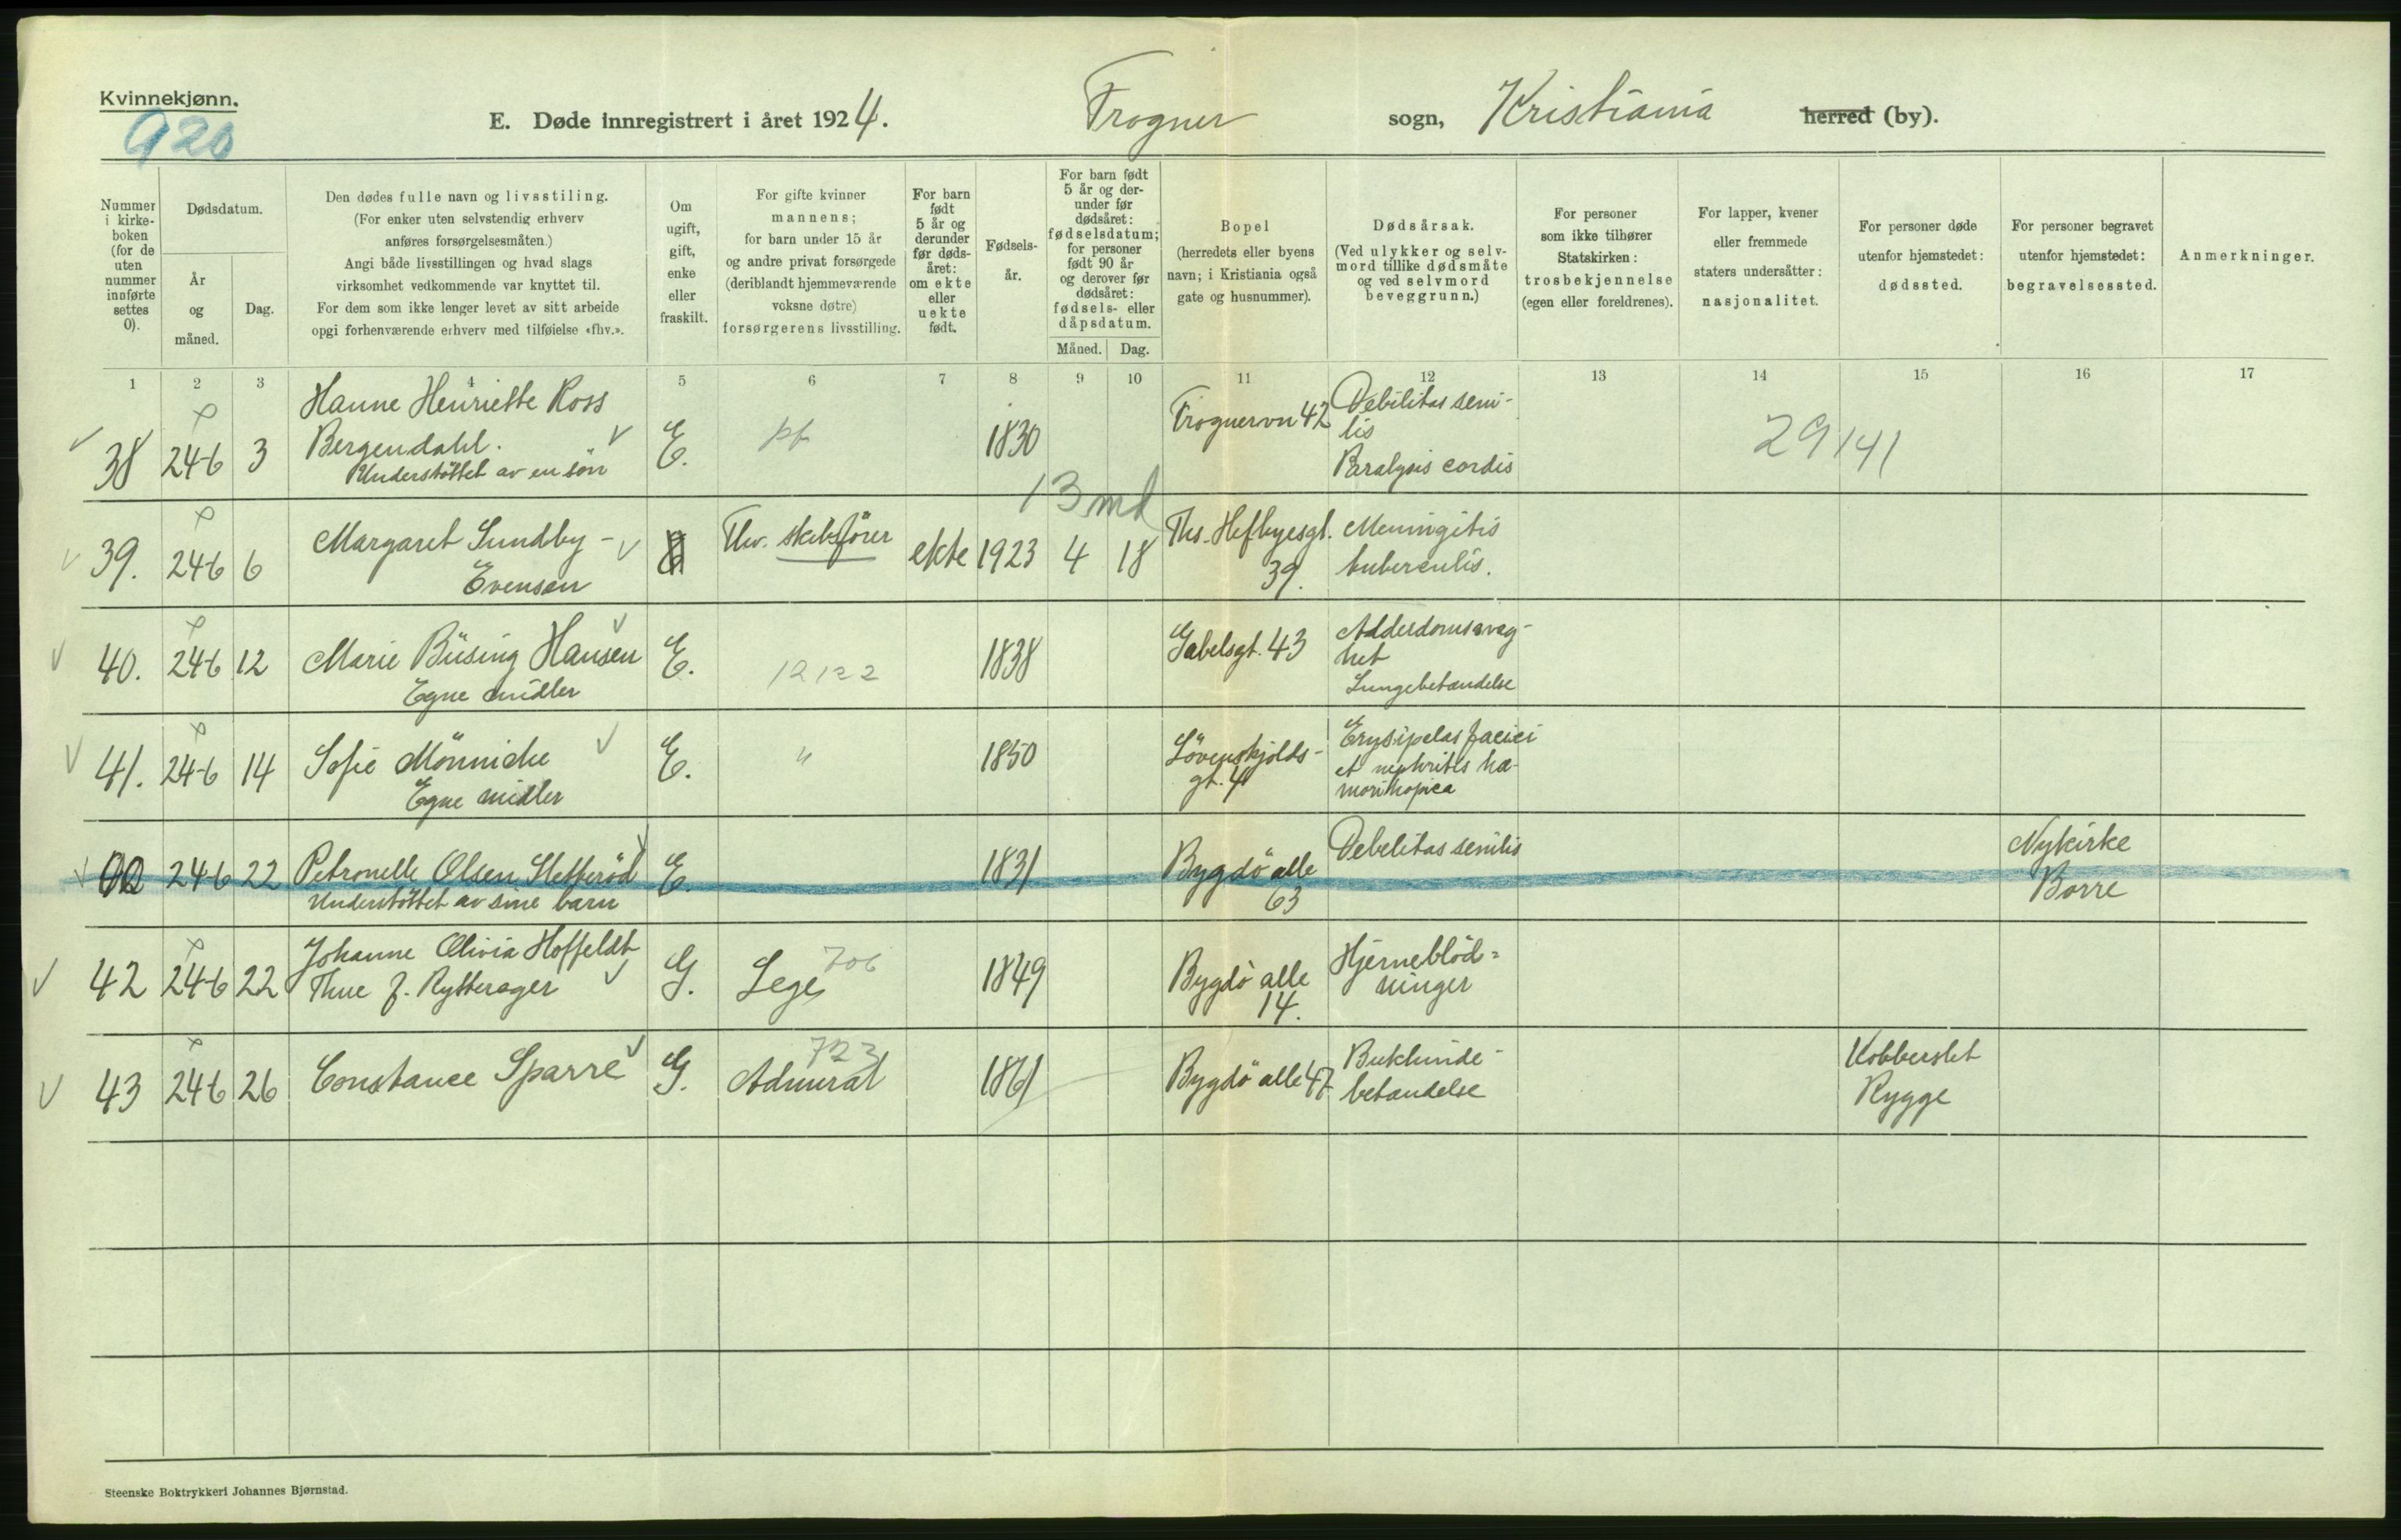 Kvinnekjønn.
920
E. Døde innregistrert i året 1924. Frogner sogn, Kristiania herred (by).
Nummer i kirkeboken (for de uten nummer innførte settes 0).
Dødsdatum.
År og måned.
Dag.
Den dødes fulle navn og livsstiling.
(For enker uten selvstendig erhverv
anføres forsørgelsesmåten.)
Angi både livsstillingen og hvad slags
virksomhet vedkommende var knyttet til.
For dem som ikke lenger levet av sitt arbeide
opgi forhenværende erhverv med tilføielse «fhv.».
Om
ugift,
gift,
enke
eller
fraskilt.
For gifte kvinner
mannens;
for barn under 15 år
og andre privat forsørgede
(deriblandt hjemmeværende
voksne døtre)
forsørgerens livsstilling.
For barn
født
5 år og
derunder
før døds-
året:
om ekte
eller
uekte
født.
Fødsels-
år.
For barn født
5 år og der-
under før
dødsåret:
fødselsdatum;
for personer
født 90 år
og derover før
dødsåret:
fødsels- eller
dåpsdatum.
Måned. Dag.
Bopel
(herredets eller byens
navn; i Kristiania også
gate og husnummer).
Dødsårsak.
(Ved ulykker og selv-
mord tillike dødsmåte
og ved selvmord
beveggrunn.)
For personer
som ikke tilhører
Statskirken:
trosbekjennelse
(egen eller foreldrenes).
For lapper, kvener
eller fremmede
staters undersåtter:
nasjonalitet.
For personer døde
utenfor hjemstedet:
dødssted.
For personer begravet
utenfor hjemstedet:
begravelsessted.
Anmerkninger.
1 2 3 4 5 6 7 8 9 10 11 12 13 14 15 16 17
38 24-6 3 Hanne Henriette Ross
Bergendahl.
Understöttet av en sön
E. 1830 Frognervn 42
Debilitas seni-
lis
Paralysis cordis
29141
13 md
39. 24-6 6 Margaret Sundby-
Evensen
Fhv. skibsförer ekte 1923 4 18
Ths. Heftyesgt.
39.
Meningitis
tuberculis.
40. 24-6 12 Marie Büsing Hansen
Egne midler
E. 12122 1838 Gabelsgt. 43
Alderdomsvag-
het
Lungebetændelse
41. 24-6 14 Sofie Mönniche
Egne midler
E. " 1850
Lövenskjolds-
gt. 4
Erysipelas faciei
et nephritis hæ-
24-6 22 Petronelle Olsen Sletteröd
Understöttet av sine barn
E. 1831
Bygdö alle
63
Debelitas senilis
Nykirke
Borre
42 24-6 22 Johanne Olivia Hoffeldt
Thue f. Rytterager
G. Lege 706 1849
Bygdö alle
14.
Hjerneblöd-
ninger
43 24-6 26 Constance Sparre
G. 723
Admiral 1861 Bygdö alle 47
Bukhinde-
betændelse
Kobberslet
Rygge
Steenske Boktrykkeri Johannes Bjørnstad.